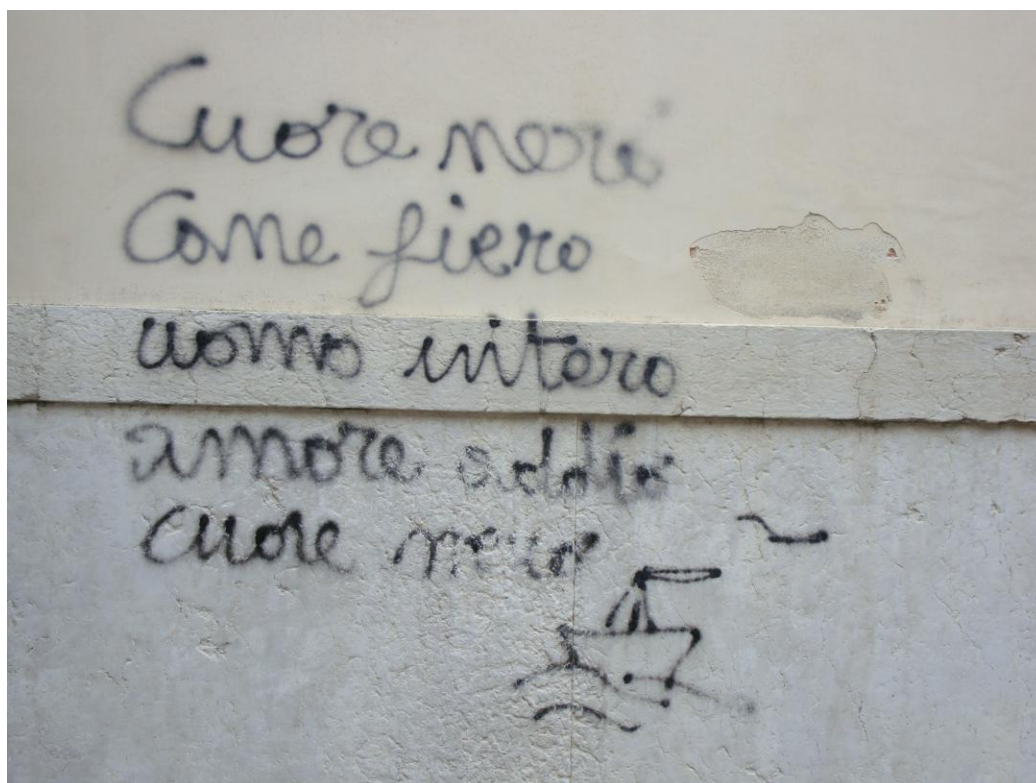 Cuore nero
Come fiero
uomo intero
amore addio
cuore nero